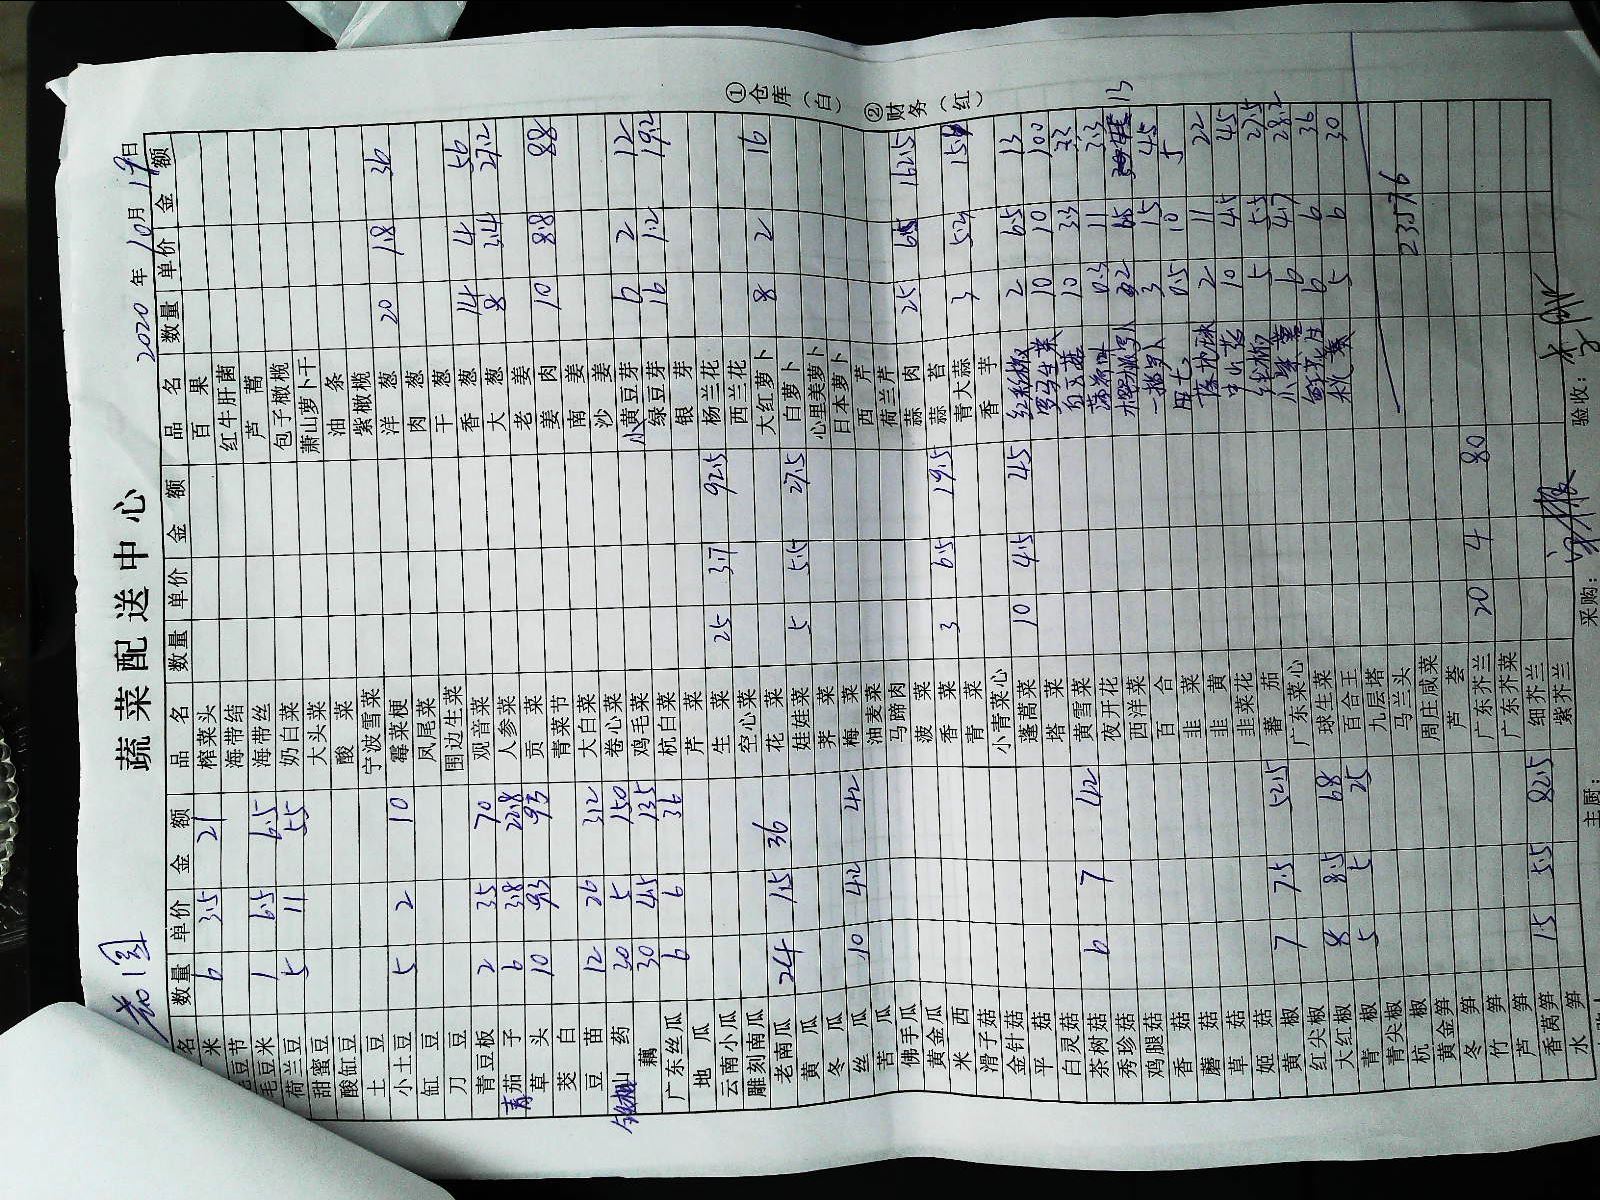 蔬菜配送中心
2020年10月19日
名 数量 单价 金额 品名 数量 单价 金额 品名 数量 单价 金额
米 6 3.5 21 榨菜头 百果
豆节 海带结 红牛肝菌
毛豆米 1 6.5 6.5 海带丝 芦蒿
荷兰豆 5 11 55 奶白菜 包子橄榄
甜蜜豆 大头菜 萧山萝卜干
酸缸豆 酸菜 油条
土豆 宁波雪菜 紫橄榄
小土豆 5 2 10 霉菜梗 洋葱 20 1.8 36
缸豆 凤尾菜 肉葱
刀豆 围边生菜 干葱
青豆板 2 35 70 观音菜 香葱 14 4 56
茄子 6 3.8 22.8 人参菜 大葱 8 3.4 27.2
草头 10 9.3 93 贡菜 老姜
茭白 青菜节 姜肉 10 8.8 88
豆苗 12 26 312 大白菜 南姜
山药 30 5 150 卷心菜 沙姜
藕 30 4.5 135 鸡毛菜 小黄豆芽 6 2 12
广东丝瓜 6 6 36 杭白菜 绿豆芽 16 1.2 19.2
地瓜 芹菜 银芽
云南小瓜 生菜 25 3.7 92.5 杨兰花
雕刻南瓜 空心菜 西兰花
老南瓜 24 1.5 36 花菜 大红萝卜 8 2 16
黄瓜 娃娃菜 5 5.5 27.5 白萝卜
冬瓜 荠菜 心里美萝卜
丝瓜 10 4.2 42 梅菜 日本萝卜
苦瓜 油麦菜 西芹
佛手瓜 马蹄肉 荷兰芹
黄金瓜 菠菜 蒜肉 25 6.5 162.5
米西 香菜 3 6.5 19.5 蒜苔
滑子菇 青菜 青大蒜 3 5.3 15.9
金针菇 小青菜心 香芋
平菇 蓬蒿菜 10 4.5 45 红彩椒 2 6.5 13
白灵菇 塔菜 罗马生菜 10 10 100
茶树菇 6 7 42 黄雪菜 10 3.3 33
秀珍菇 夜开花 薄荷叶 0.3 11 3.3
鸡腿菇 西洋菜 0.2 65 13
香菇 百合 3 15 45
蘑菇 韭菜 0.5 10 5
草菇 韭黄 2 11 22
姬菇 韭菜花 10 4.5 45
黄椒 7 7.5 52.5 蕃茄 5 5.5 27.5
红尖椒 广东菜心 小紫薯 6 4.7 28.2
大红椒 8 8.5 68 球生菜 6 6 36
青椒 5 5 25 百合王 秋葵 5 6 30
青尖椒 九层塔
杭椒 马兰头 2357.6
黄金笋 周庄咸菜
冬笋 芦荟
竹笋 广东芥兰 20 4 80
芦笋 广东芥菜
香莴笋 15 5.5 82.5 细芥兰
水笋 紫芥兰
主厨： 采购： 验收：
①仓库（白） ②财务（红）